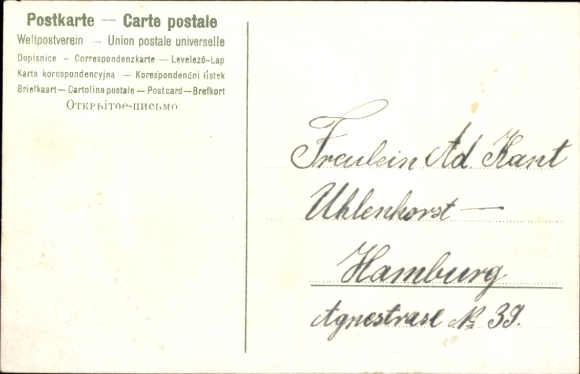 Postkarte — Carte postale
Weltpostverein — Union postale universelle
Dopisnice — Correspondenzkarte — Levelező-Lap
Karta korespondencyjna — Korespondenční lístek
Briefkaart — Cartolina postale — Postcard — Brefkort
Открытое-письмо
Freulein Ad Kant
Uhlenhorst —
Hamburg
Agnestrase № 39.